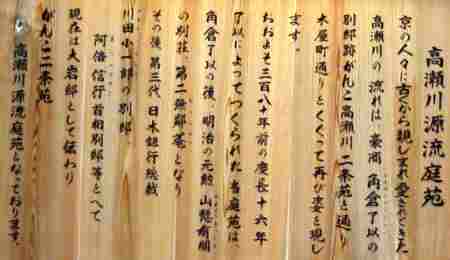 高瀬川源流庭苑
京の人々に古くから親しまれ愛されてきた
高瀬川の流れは豪商 角倉了以の
別邸跡がんこ高瀬川二条苑を通り
木屋町通りをくぐって再び姿を現し
ます。
おおよそ三百八十年前の慶長十六年
了以によってつくられた当庭苑は
角倉了以の後、明治の元勲 山縣有朋
の別荘、第二無鄰菴となり
その後 第三代 日本銀行総裁
川田小一郎の別邸
阿倍信行首相別邸等をへて
現在は大岩邸として伝わり
がんこ二条苑
高瀬川源流庭苑となっております。